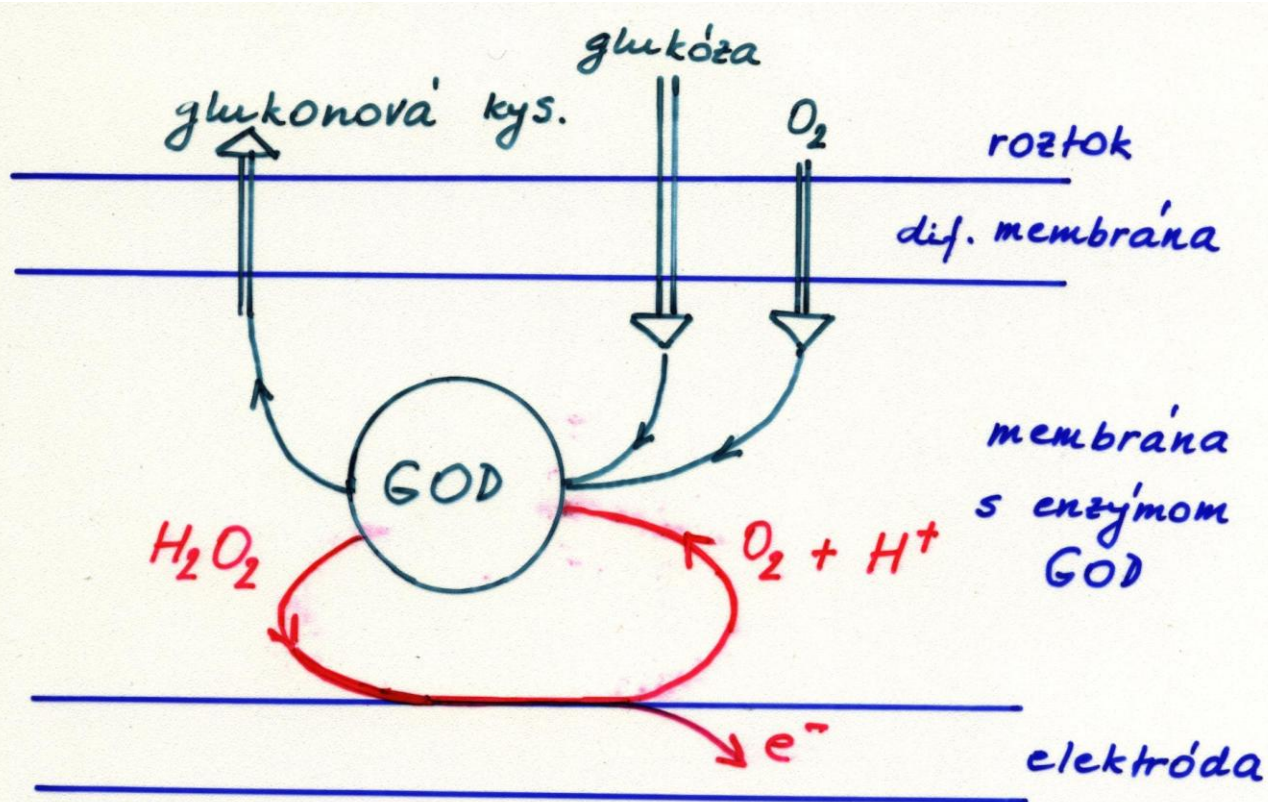 glukóza
glukonová kys.
O₂
roztok
dif. membrána
membrána
s enzýmom
GOD
GOD
H₂O₂
O₂ + H⁺
e⁻
elektróda